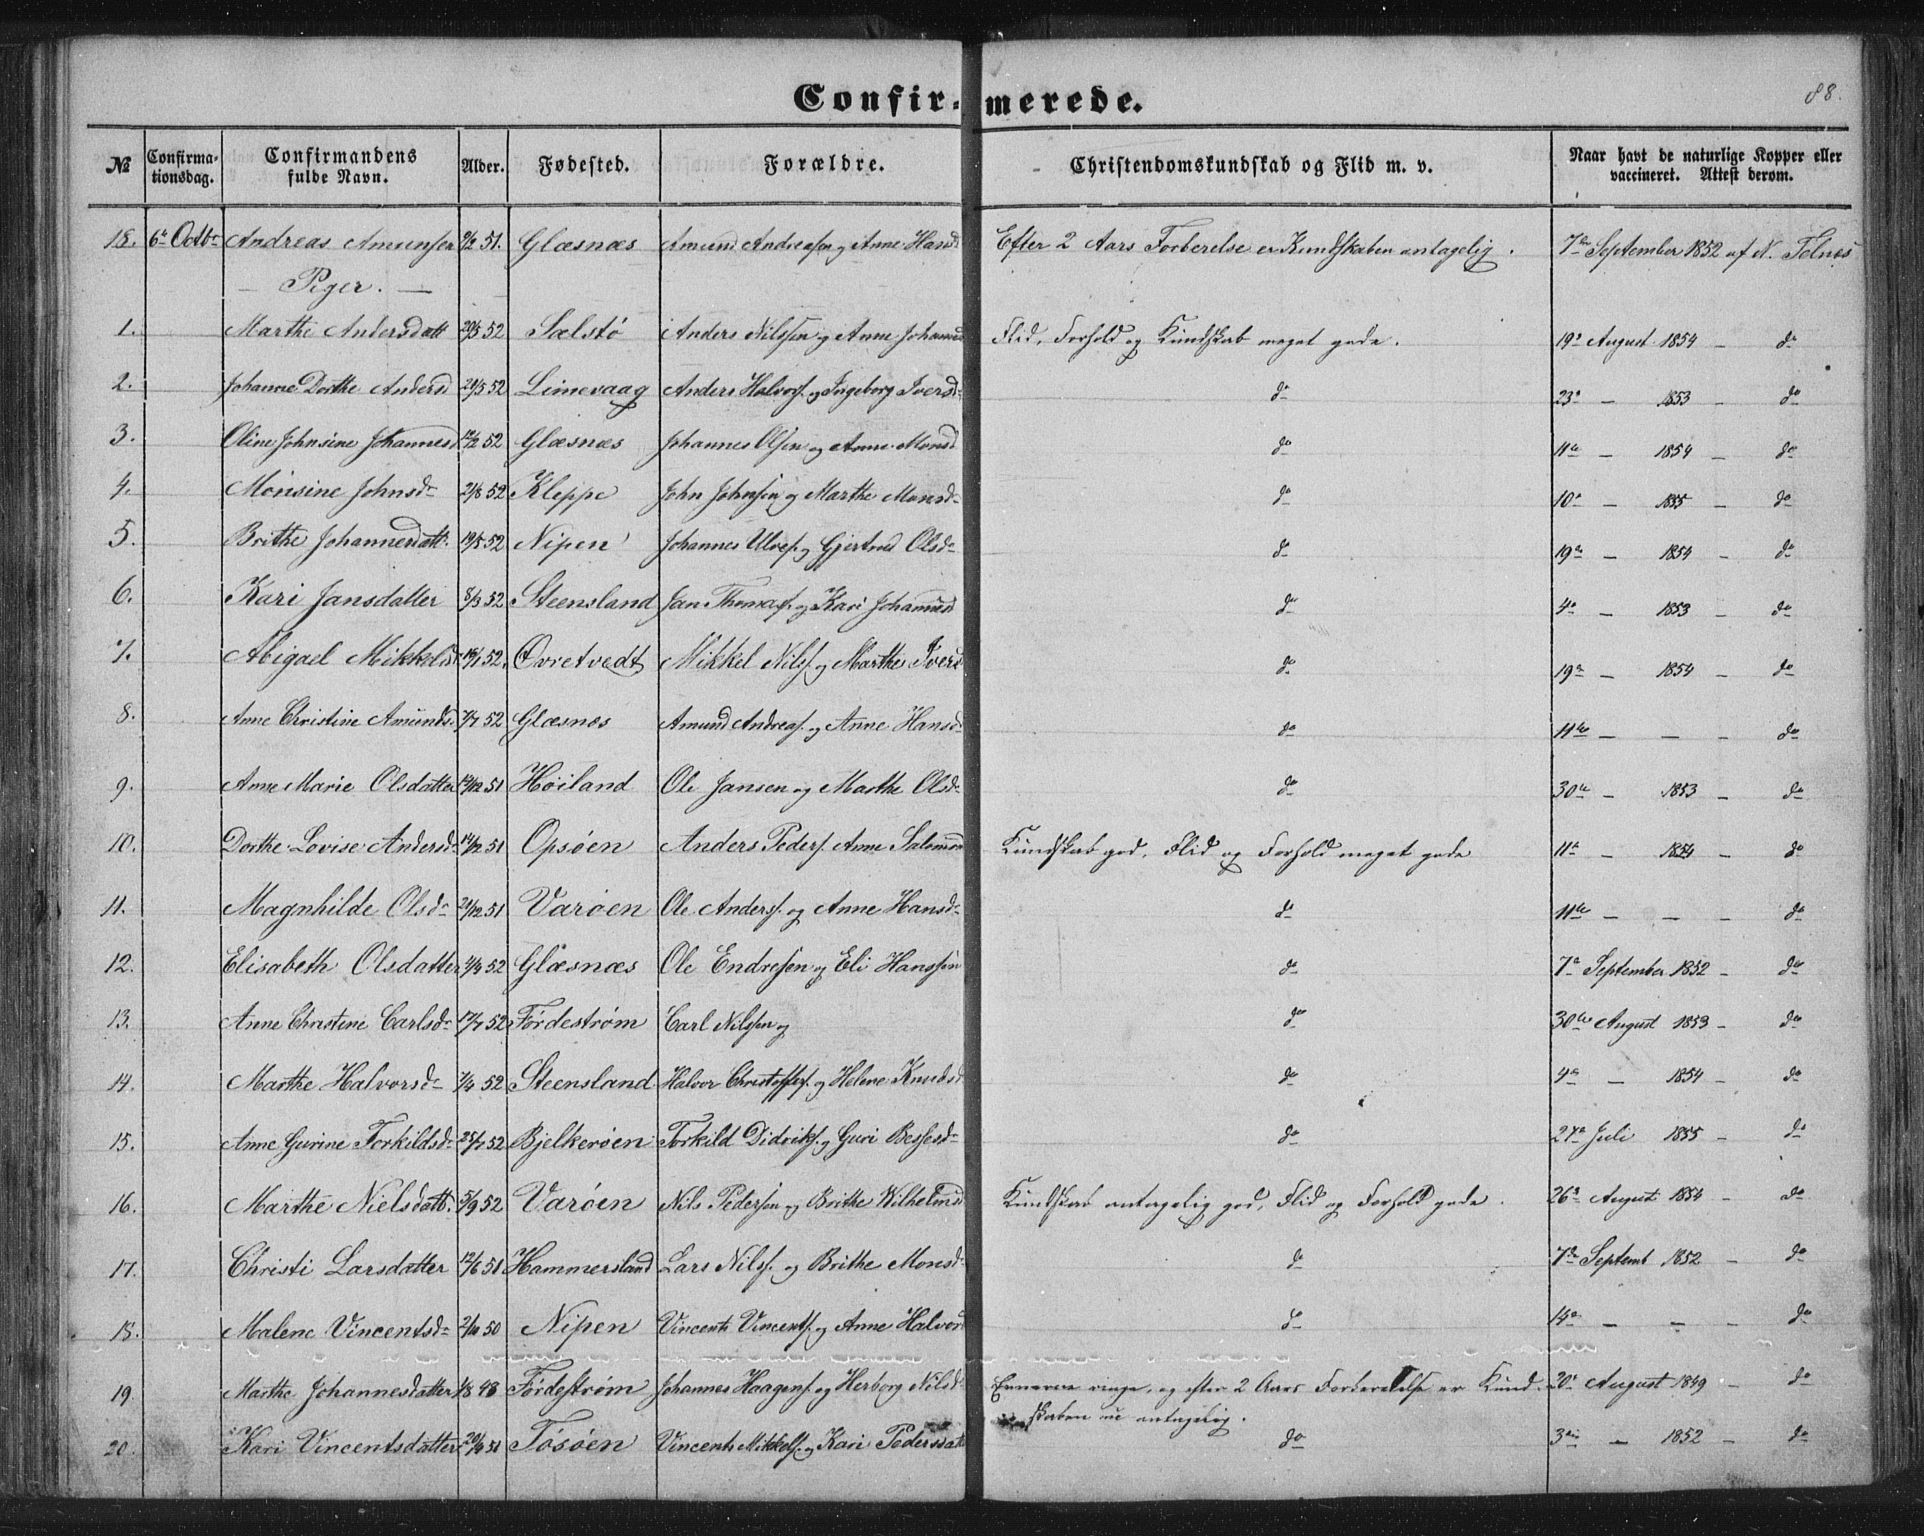 Confirmerede.
88.
№ Confirmationsdag. Confirmandens fulde Navn. Alder. Fødested. Forældre. Christendomskundskab og Flid m. v. Naar havt de naturlige Kopper eller vaccineret. Attest derom.
18. 6te Octbr Andreas Amunsen 51. Glæsnæs Amund Andreassen og Anne Hansd Efter 2 Aars Forberelse er Kundskaben antagelig. 7de September 1852 af N. Telnes
— Piger. —
1. Marthe Andersdatt 20/5 52 Sælstö Anders Nilssen og Anne Johannesd Flid, Forhold og Kundskab meget gode. 19de August 1854 — do
2. Johanne Dorthe Andersd 52 Limevaag Anders Halvors. og Ingeborg Iversdr do 23de — 1853 — do
3. Oline Johnsine Johannesd 52 Glæsnæs Johannes Olsen og Anne Monsd do 11te — 1854 — do
4. Monsine Johnsdr 21/8 52 Kleppe John Johnsen og Marthe Monsdr do 10de — 1855 — do
5. Brithe Johannesdatt. 19/5 52 Nipen Johannes Ulves. og Gjertrud Olsdr do 19de — 1854 — do
6. Kari Jansdatter 8/3 52 Steensland Jan Thomas. og Kari Johannesd do 4de — 1853 — do
7. Abigael Mikkelsd 52. Øvretvedt Mikkel Nils. og Marthe Iversd do 19de — 1854 — do
8. Anne Christine Amunds. 52 Glæsnæs Amund Andreas. og Anne Hansd do 11te — — — do
9. Anne Marie Olsdatter 51 Høiland Ole Jansen og Marthe Olsdr do 30te — 1853 — do
10. Dorthe Lovise Andersdr 14/12 51 Opsöen Anders Peders. Anne Salomond Kundskab god, Flid og Forhold meget gode 11te — 1854 — do
11. Magnhilde Olsdr 21/12 51 Varöen Ole Anders. og Anne Hansdr do 11te — — — do
12. Elisabeth Olsdatter 52 Glæsnæs Ole Endresen og Eli Hanssön do 7de September 1852 — do
13. Anne Christine Carlsdr 17/7 52 Fördeström Carl Nilssen og do 30te August 1853 — do
14. Marthe Halvorsdr 7/4 52 Steensland Halvor Christoffers. og Helene Knudsd do 4de — 1854 — do
15. Anne Gurine Torkildsdr 25/7 52 Bjelkeröen Torkild Didriks. og Guri Bessesdr do 27de Juli 1855 — do
16. Marthe Nielsdatt. 5/9 52 Varöen Nils Pedersen og Brithe Wilhelmsd Kundskab antagelig god, Flid og Forhold gode. 26de August 1854 — do
17. Christi Larsdatter 12/6 51 Hammersland Lars Nils. og Brithe Monsdr do 7de Septemb 1852 — do
18. Malene Vincentsdr 50 Nipen Vincents Vincents. og Anne Halvorsd do 14de — — — do
19. Marthe Johannesdatter 48 Fördeström Johannes Haagens. og Herborg Nilsdr Evnerne ringe, og efter 2 Aars Forberedelse er Kund- 20de August 1849 — do
skaben nu antagelig.
20. Kari Vincentsdatter 51 Tösöen Vincents Mikkels. og Kari Pedersdatt do 3die — 1852 — do